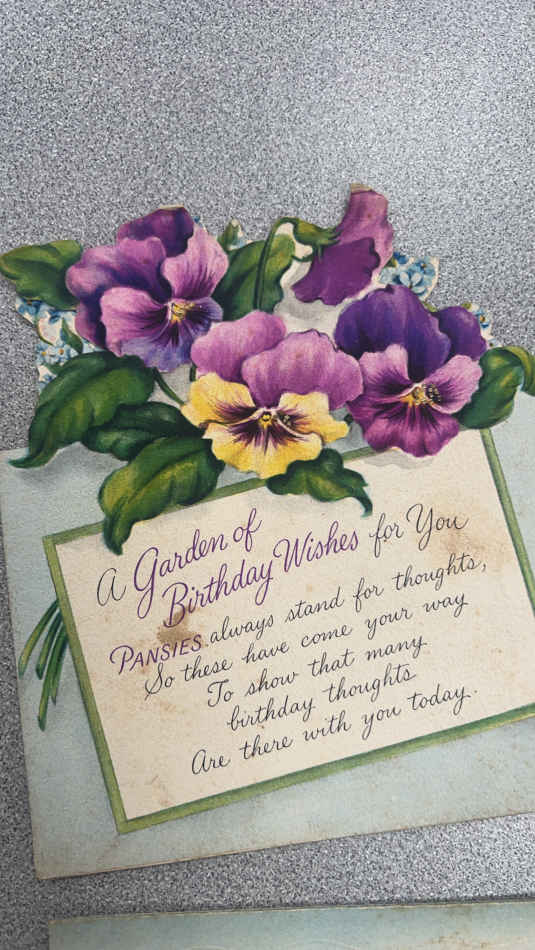 A Garden of
Birthday Wishes for You
PANSIES always stand for thoughts,
So these have come your way
To show that many
birthday thoughts
Are there with you today.